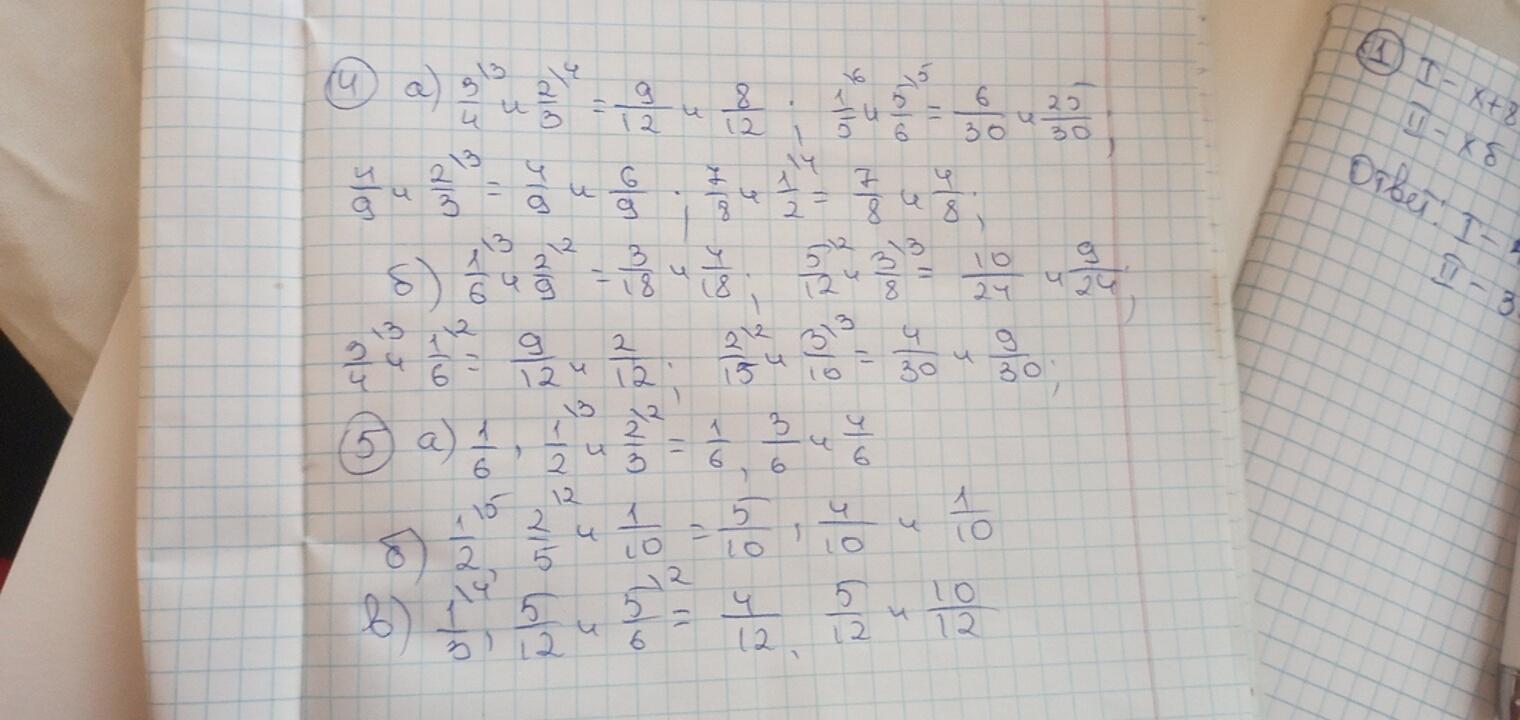 ④ а) 3/4\3 и 2/3\4 = 9/12 и 8/12; 1/5\6 и 5/6\5 = 6/30 и 25/30;
4/9 и 2/3\3 = 4/9 и 6/9; 7/8 и 1/2\4 = 7/8 и 4/8;
б) 1/6\3 и 2/9\2 = 3/18 и 4/18; 5/12\2 и 3/8\3 = 10/24 и 9/24;
3/4\3 и 1/6\2 = 9/12 и 2/12; 2/15\2 и 3/10\3 = 4/30 и 9/30;
⑤ а) 1/6, 1/2\3 и 2/3\2 = 1/6, 3/6 и 4/6
б) 1/2\5, 2/5\2 и 1/10 = 5/10, 4/10 и 1/10
в) 1/3\4, 5/12 и 5/6\2 = 4/12, 5/12 и 10/12
① I - x+8
II - x
Ответ: I -
II - 3